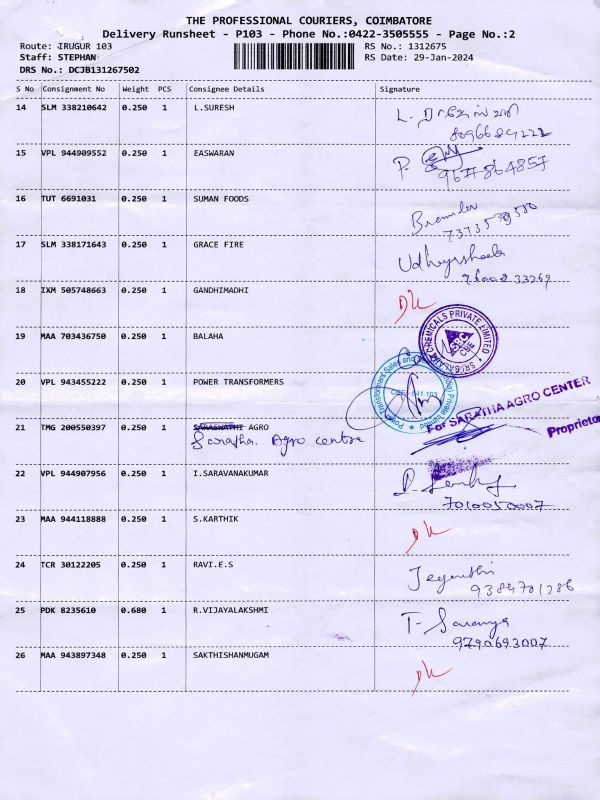 THE PROFESSIONAL COURIERS, COIMBATORE
Delivery Runsheet - P103 - Phone No.:0422-3505555 - Page No.:2
Route: IRUGUR 103 RS No.: 1312675
Staff: STEPHAN RS Date: 29-Jan-2024
DRS No.: DCJB131267502
S No Consignment No Weight PCS Consignee Details Signature
14 SLM 338210642 0.250 1 L.SURESH
15 VPL 944909552 0.250 1 EASWARAN
9677864857
16 TUT 6691031 0.250 1 SUMAN FOODS
17 SLM 338171643 0.250 1 GRACE FIRE
18 IXM 505748663 0.250 1 GANDHIMADHI
19 MAA 703436750 0.250 1 BALAHA
CHEMICALS PRIVATE LIMITED
20 VPL 943455222 0.250 1 POWER TRANSFORMERS
Power Transformers Sales and
Private Limited
21 TMG 200550397 0.250 1 SARASWATHI AGRO
Saratha Agro centre
For SARATHA AGRO CENTER
Proprietor
22 VPL 944907956 0.250 1 I.SARAVANAKUMAR
7010050007
23 MAA 944118888 0.250 1 S.KARTHIK
24 TCR 30122205 0.250 1 RAVI.E.S
Jeyanthi
9384701286
25 PDK 8235610 0.680 1 R.VIJAYALAKSHMI
T- Saranya
9790693007
26 MAA 943897348 0.250 1 SAKTHISHANMUGAM